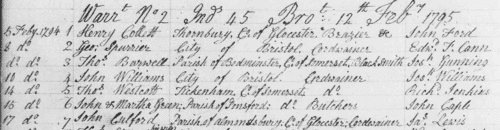 Warrt No 2 Ind 45 Brot 12th Feby 1795
5 Feby 1794 1 Henry Collett Thornbury, Co. of Glocester Brazier &c John Ford
8 do 2 Geo: Spurrier City of Bristol Cordwainer Edwd T. Cann
do do 3 Thos Barwell Parish of Bedminster, Co. of Somerset, Black Smith Jos: Gunning
10 do 4 John Williams City of Bristol Cordwainer Jos: Williams
14 do 5 Thos Westcott Tickenham, Co. of Somerset do Richd Jenkins
16 do 6 John & Martha Green, Parish of Butchers John Caple
17 do 7 John Parish of Almondsbury, Co. of Glocester: Cordwainer Jas: Lewis